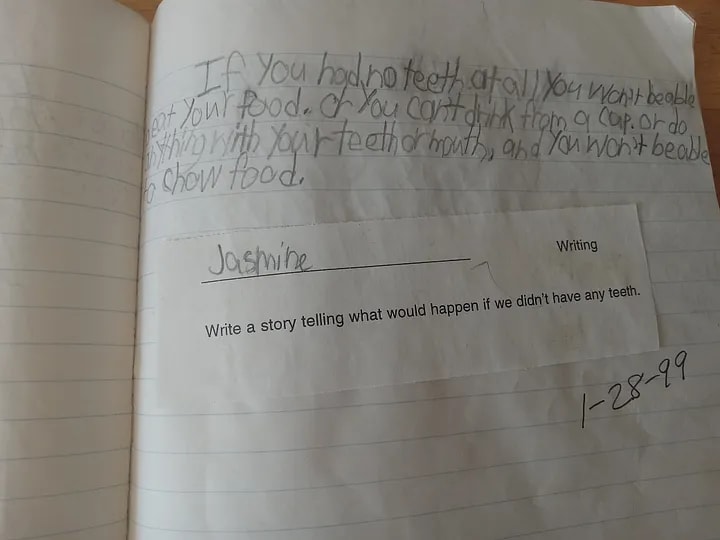 If you had no teeth at all you won't be able
eat your food. or you can't drink from a cup. or do
anything with your teeth or mouth, and you won't be able
to chow food.
Jasmine
Writing
Write a story telling what would happen if we didn't have any teeth.
1-28-99